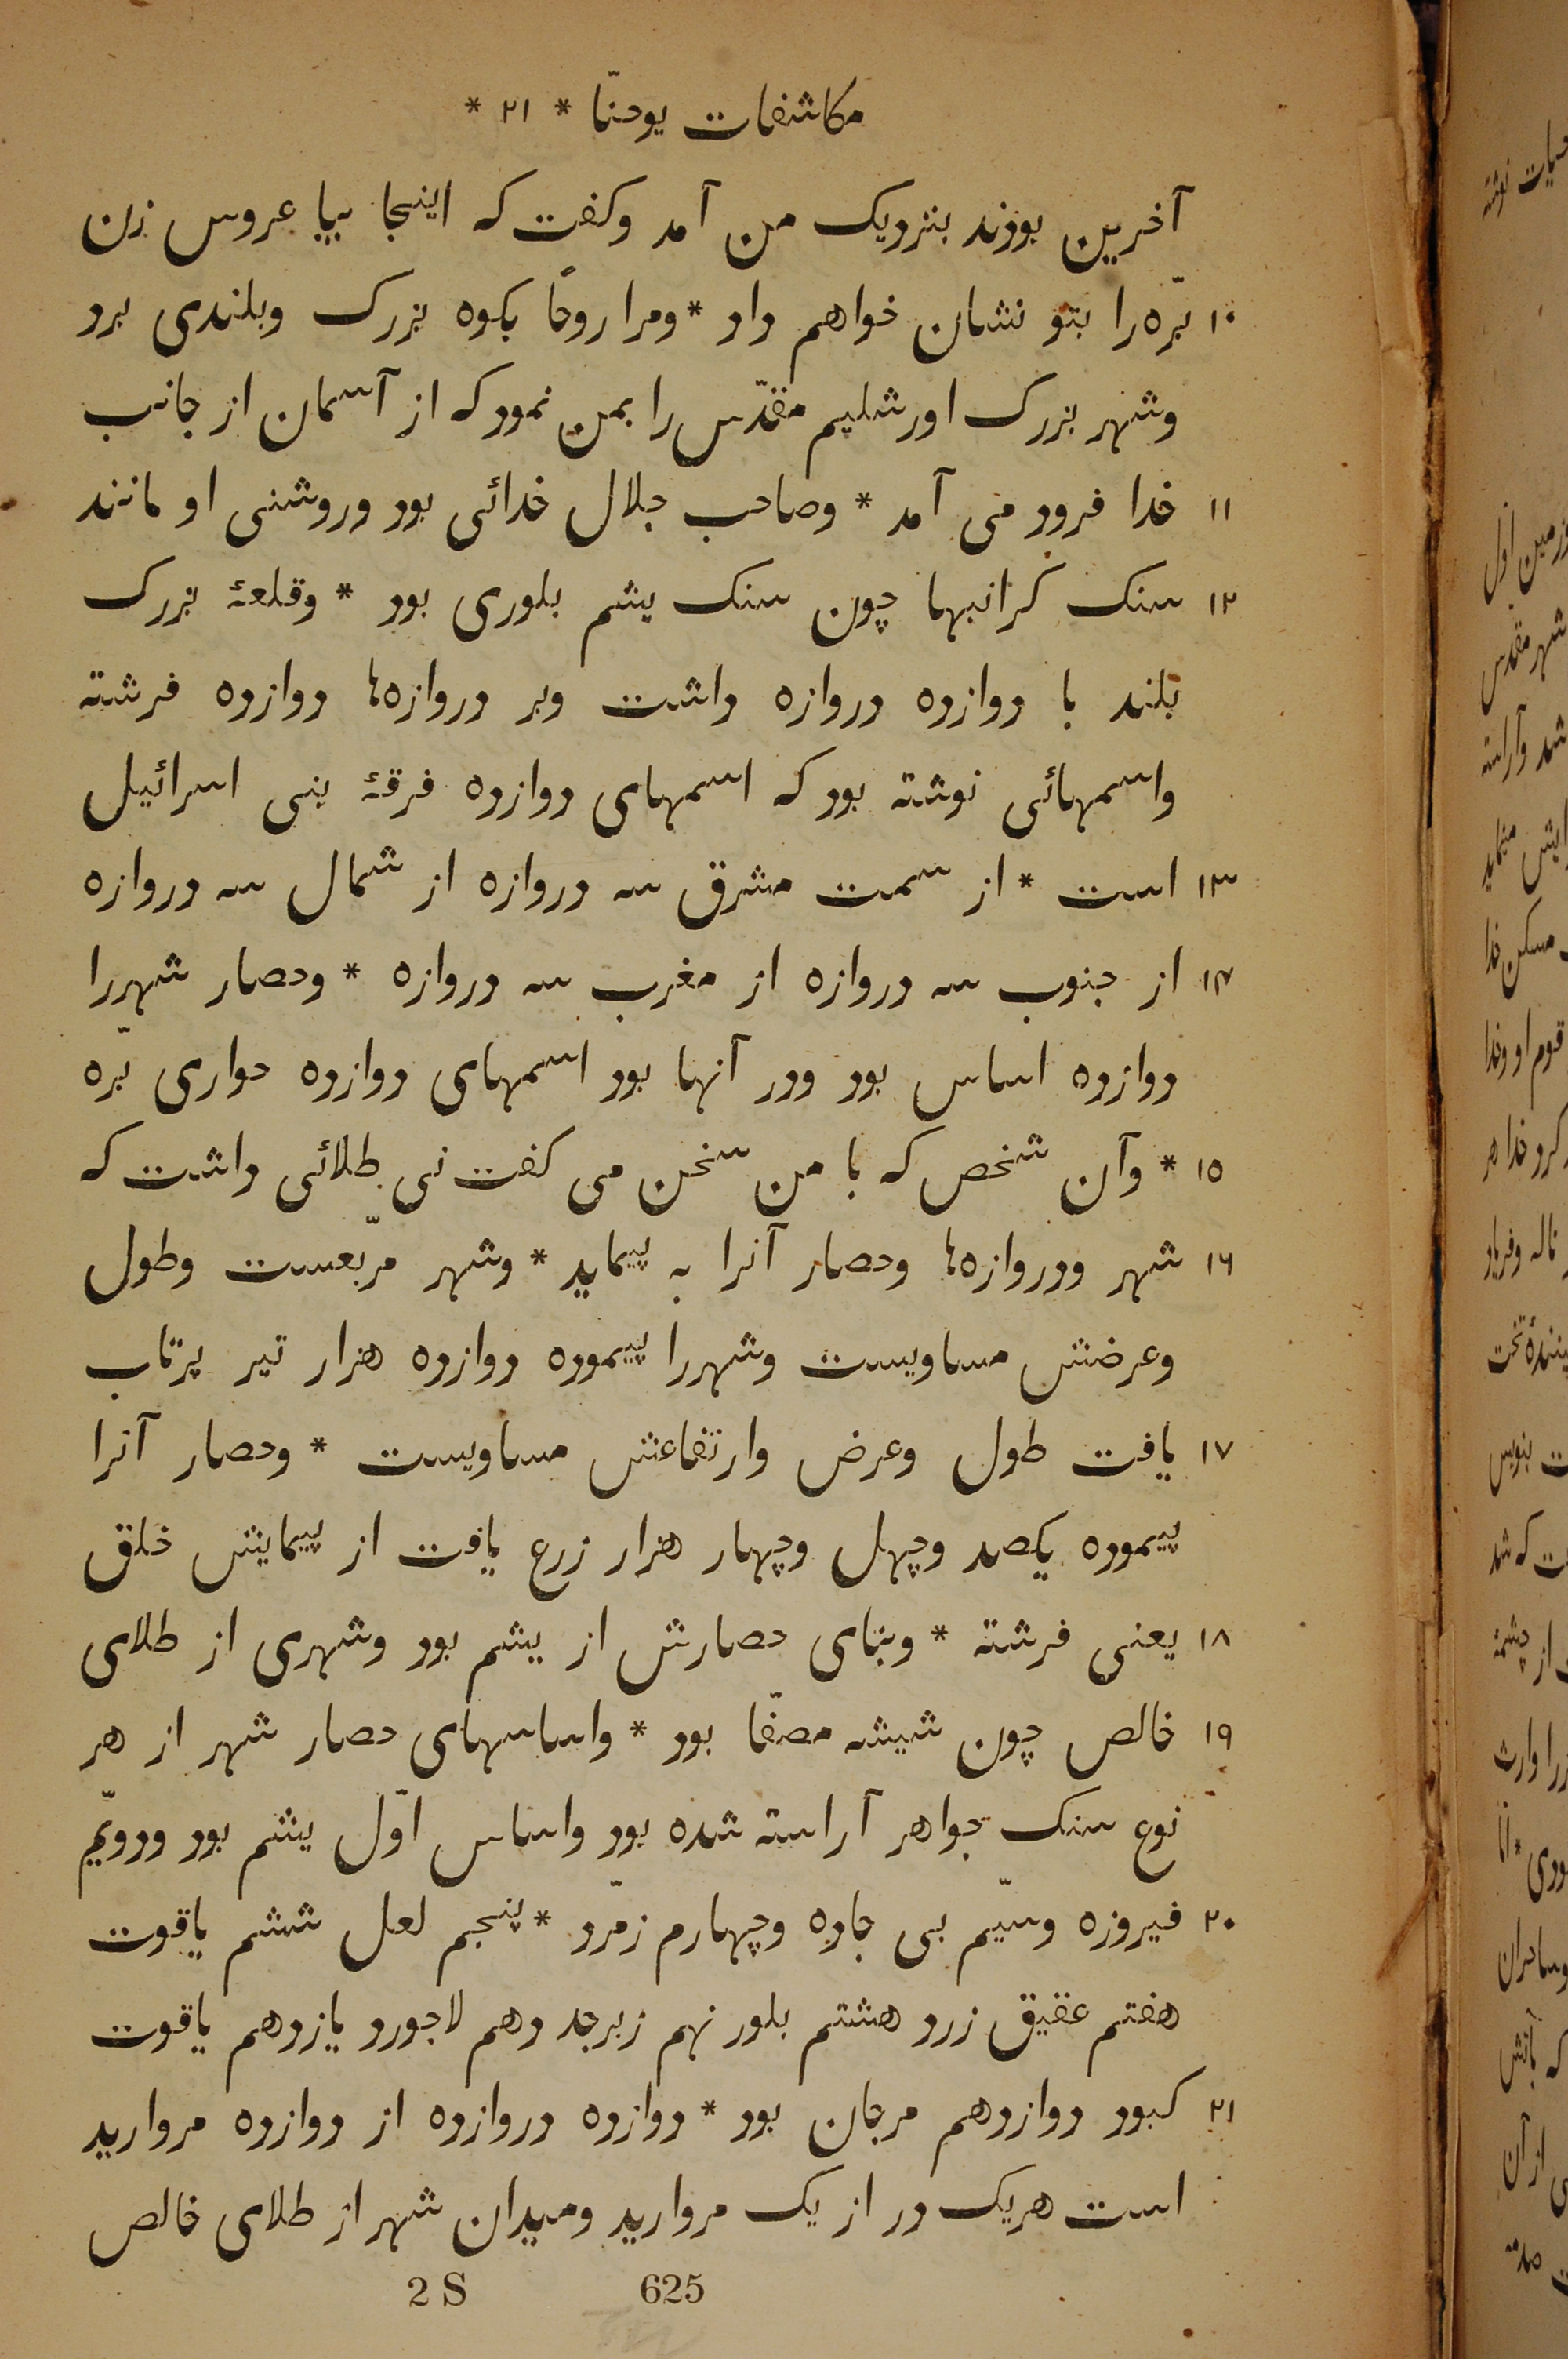 مکاشفات یوحنّا * ۲۱ *
آخرین بودند بنزدیک من آمد وکفت که اینجا بیا عروس زن
۱۰ برّه‌را بتو نشان خواهم داد * ومرا روحًا بکوه بزرک وبلندی برد
وشهر بزرک اورشلیم مقدّس را بمن نمود که از آسمان از جانب
۱۱ خدا فرود می آمد * وصاحب جلال خدائی بود وروشنی او مانند
۱۲ سنک کرانبها چون سنک یشم بلوری بود * وقلعهٔ بزرک
بلند با دوازده دروازه داشت وبر دروازه‌ها دوازده فرشته
واسمهائی نوشته بود که اسمهای دوازده فرقهٔ بنی اسرائیل
۱۳ است * از سمت مشرق سه دروازه از شمال سه دروازه
۱۴ از جنوب سه دروازه از مغرب سه دروازه * وحصار شهررا
دوازده اساس بود ودر آنها بود اسمهای دوازده حواری برّه
۱۵ * وآن شخص که با من سخن می کفت نی طلائی داشت که
۱۶ شهر ودروازه‌ها وحصار آنرا به پیماید * وشهر مربّعست وطول
وعرضش مساویست وشهررا پیموده دوازده هزار تیر پرتاب
۱۷ یافت طول وعرض وارتفاعش مساویست * وحصار آنرا
پیموده یکصد وچهل وچهار هزار زرع یافت از پیمایش خلق
۱۸ یعنی فرشته * وبنای حصارش از یشم بود وشهری از طلای
۱۹ خالص چون شیشه مصفّا بود * واساسهای حصار شهر از هر
نوع سنک جواهر آراسته شده بود واساس اوّل یشم بود ودویّم
۲۰ فیروزه وسیّم بی جاده وچهارم زمرّد * پنجم لعل ششم یاقوت
هفتم عقیق زرد هشتم بلور نهم زبرجد دهم لاجورد یازدهم یاقوت
۲۱ کبود دوازدهم مرجان بود * دوازده دروازده از دوازده مروارید
است هریک در از یک مروارید ومیدان شهر از طلای خالص
2 S 625